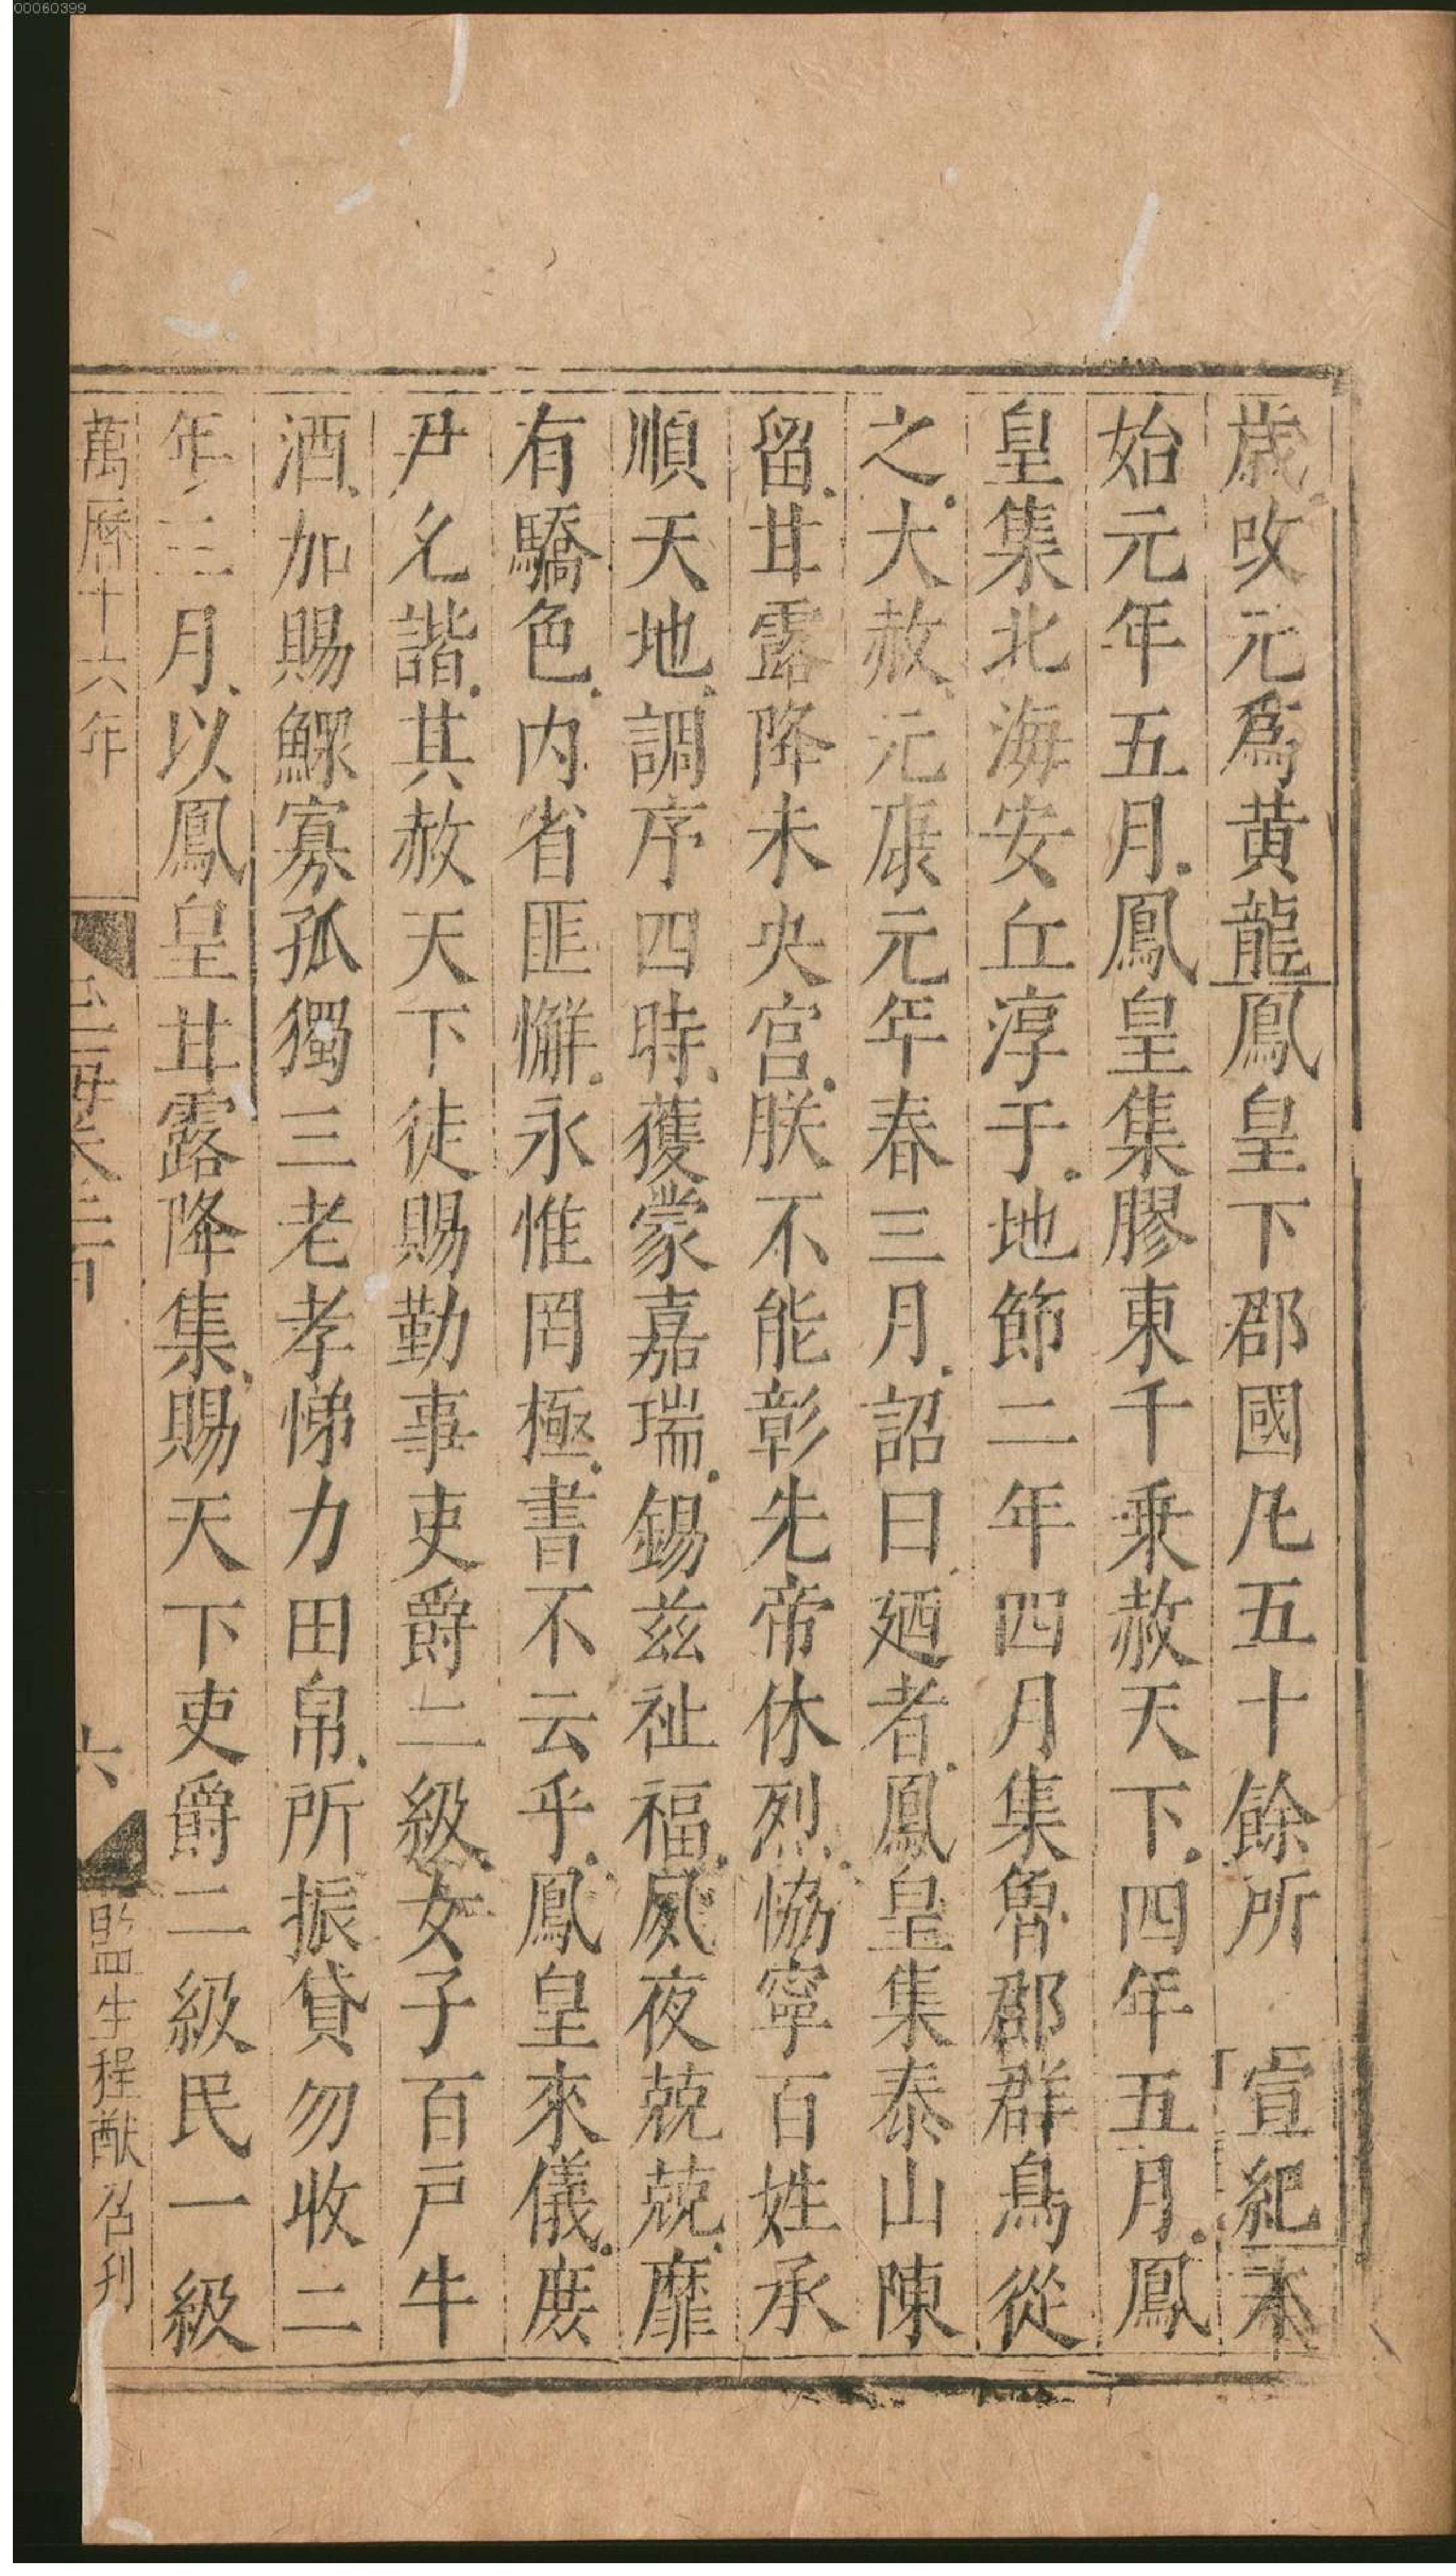 00060399
歲改元為黃龍鳳皇下郡國凡五十餘所　宣紀本
始元年五月鳳皇集膠東千乗赦天下四年五月鳳
皇集北海安丘淳于地節二年四月集魯郡群鳥從
之大赦元康元年春三月詔曰廼者鳳皇集泰山陳
留甘露降未央宫朕不能彰先帝休烈恊寧百姓承
順天地調序四時獲蒙嘉瑞錫兹祉福夙夜兢兢靡
有驕色内省匪懈永惟罔極書不云乎鳳皇來儀庶
尹允諧其赦天下徒賜勤事吏爵二級女子百戸牛
酒加賜鰥寡孤獨三老孝悌力田帛所振貸勿收二
年三月以鳳皇甘露降集賜天下吏爵二級民一級
萬曆十六年
玉海卷二百
六
監生程猷召刊